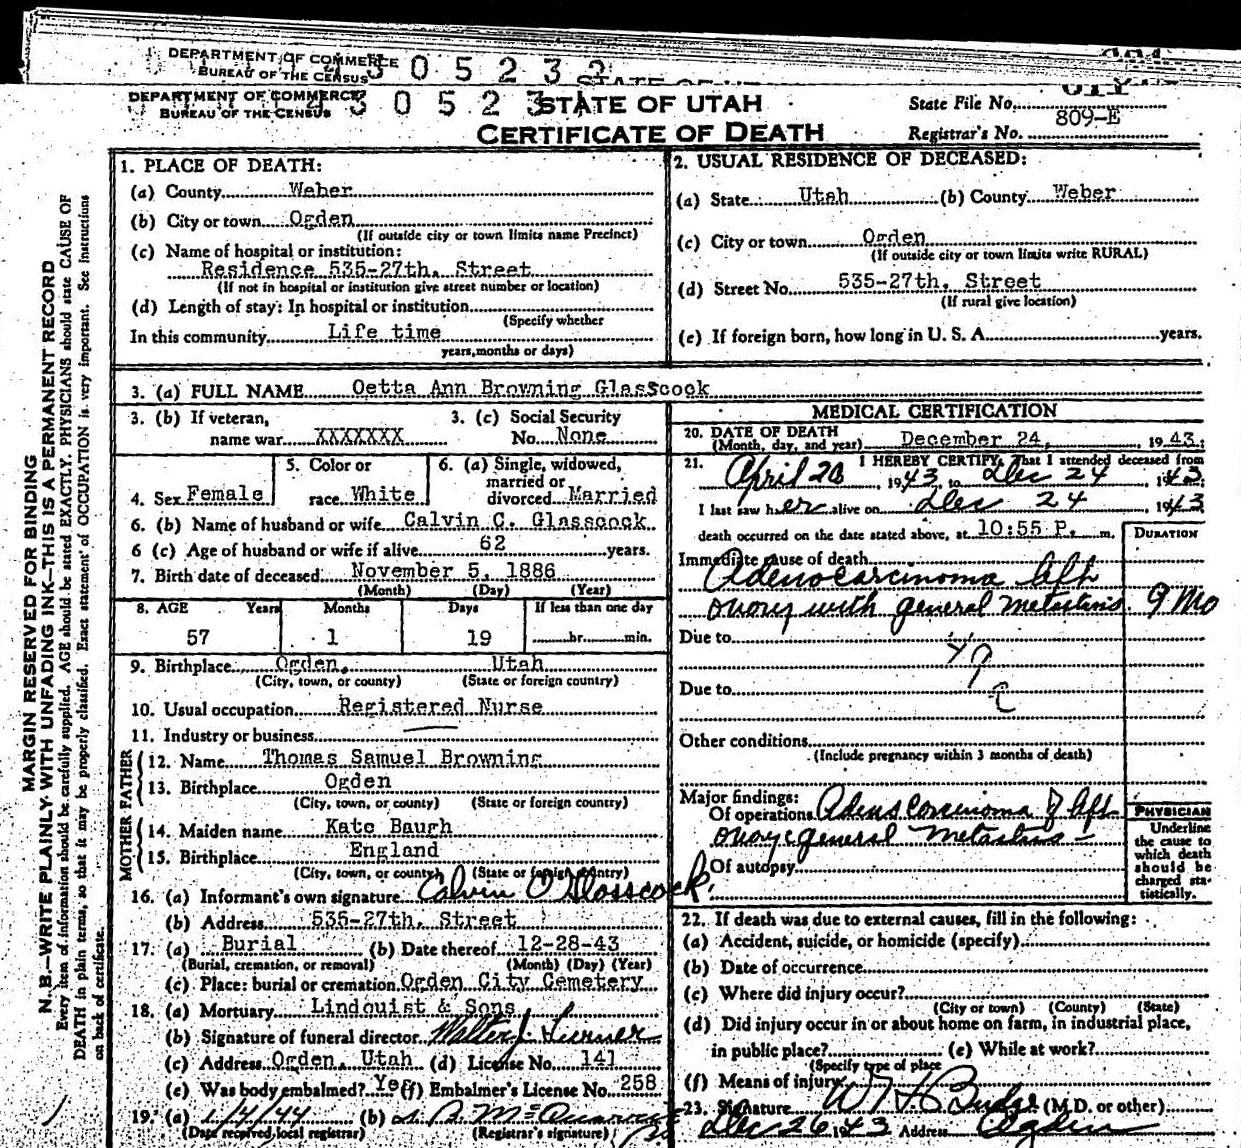 DEPARTMENT OF COMMERCE
BUREAU OF THE CENSUS
3 0 5 2 3 2
DEPARTMENT OF COMMERCE
BUREAU OF THE CENSUS
4 3 0 5 2 3
STATE OF UTAH
CERTIFICATE OF DEATH
State File No.
CITY
Registrar's No. 809-E
MARGIN RESERVED FOR BINDING
N. B.—WRITE PLAINLY WITH UNFADING INK—THIS IS A PERMANENT RECORD
Every item of information should be carefully supplied. AGE should be stated EXACTLY. PHYSICIANS should state CAUSE OF
DEATH in plain terms, so that it may be properly classified. Exact statement of OCCUPATION is very important. See instructions
on back of certificate.
1. PLACE OF DEATH:
(a) County Weber
(b) City or town Ogden
(If outside city or town limits name Precinct)
(c) Name of hospital or institution:
Residence 535-27th. Street
(If not in hospital or institution give street number or location)
(d) Length of stay: In hospital or institution
(Specify whether
In this community Life time
years, months or days)
2. USUAL RESIDENCE OF DECEASED:
(a) State Utah (b) County Weber
(c) City or town Ogden
(If outside city or town limits write RURAL)
(d) Street No. 535-27th. Street
(If rural give location)
(e) If foreign born, how long in U. S. A. years.
3. (a) FULL NAME Oetta Ann Browning Glasscock
3. (b) If veteran,
name war XXXXXXX
3. (c) Social Security
No. None
4. Sex Female
5. Color or
race White
6. (a) Single, widowed,
married or
divorced Married
6. (b) Name of husband or wife Calvin C. Glasscock
6 (c) Age of husband or wife if alive 62 years.
7. Birth date of deceased November 5, 1886
(Month) (Day) (Year)
8. AGE Years Months Days If less than one day
57 1 19 hr. min.
9. Birthplace Ogden, Utah
(City, town, or county) (State or foreign country)
10. Usual occupation Registered Nurse
11. Industry or business
FATHER
12. Name Thomas Samuel Browning
13. Birthplace Ogden
(City, town, or county) (State or foreign country)
MOTHER
14. Maiden name Kate Baugh
15. Birthplace England
(City, town, or county) (State or foreign country)
16. (a) Informant's own signature Calvin O Glasscock
(b) Address 535-27th. Street
17. (a) Burial (b) Date thereof 12-28-43
(Burial, cremation, or removal) (Month) (Day) (Year)
(c) Place: burial or cremation Ogden City Cemetery
18. (a) Mortuary Lindquist & Sons
(b) Signature of funeral director Walter J.
(c) Address Ogden, Utah (d) License No. 141
(e) Was body embalmed? Yes (f) Embalmer's License No. 258
19. (a) 1/4/44 (b)
(Date received local registrar) (Registrar's signature)
MEDICAL CERTIFICATION
20. DATE OF DEATH
(Month, day, and year) December 24, 1943:
21. I HEREBY CERTIFY, That I attended deceased from
April 20 1943, to Dec 24 1943;
I last saw her alive on Dec 24 1943
death occurred on the date stated above, at 10:55 P. m.
DURATION
Immediate cause of death
Adenocarcinoma left
ovary with general metastasis 9 Mo
Due to
Due to
Other conditions
(Include pregnancy within 3 months of death)
Major findings:
Of operations Adenocarcinoma of left
ovary c general metastasis
Of autopsy
PHYSICIAN
Underline
the cause to
which death
should be
charged sta-
tistically.
22. If death was due to external causes, fill in the following:
(a) Accident, suicide, or homicide (specify)
(b) Date of occurrence
(c) Where did injury occur?
(City or town) (County) (State)
(d) Did injury occur in or about home on farm, in industrial place,
in public place? (e) While at work?
(Specify type of place
(f) Means of injury
23. Signature W H Budge (M.D. or other)
Dec 26 1943 Address Ogden